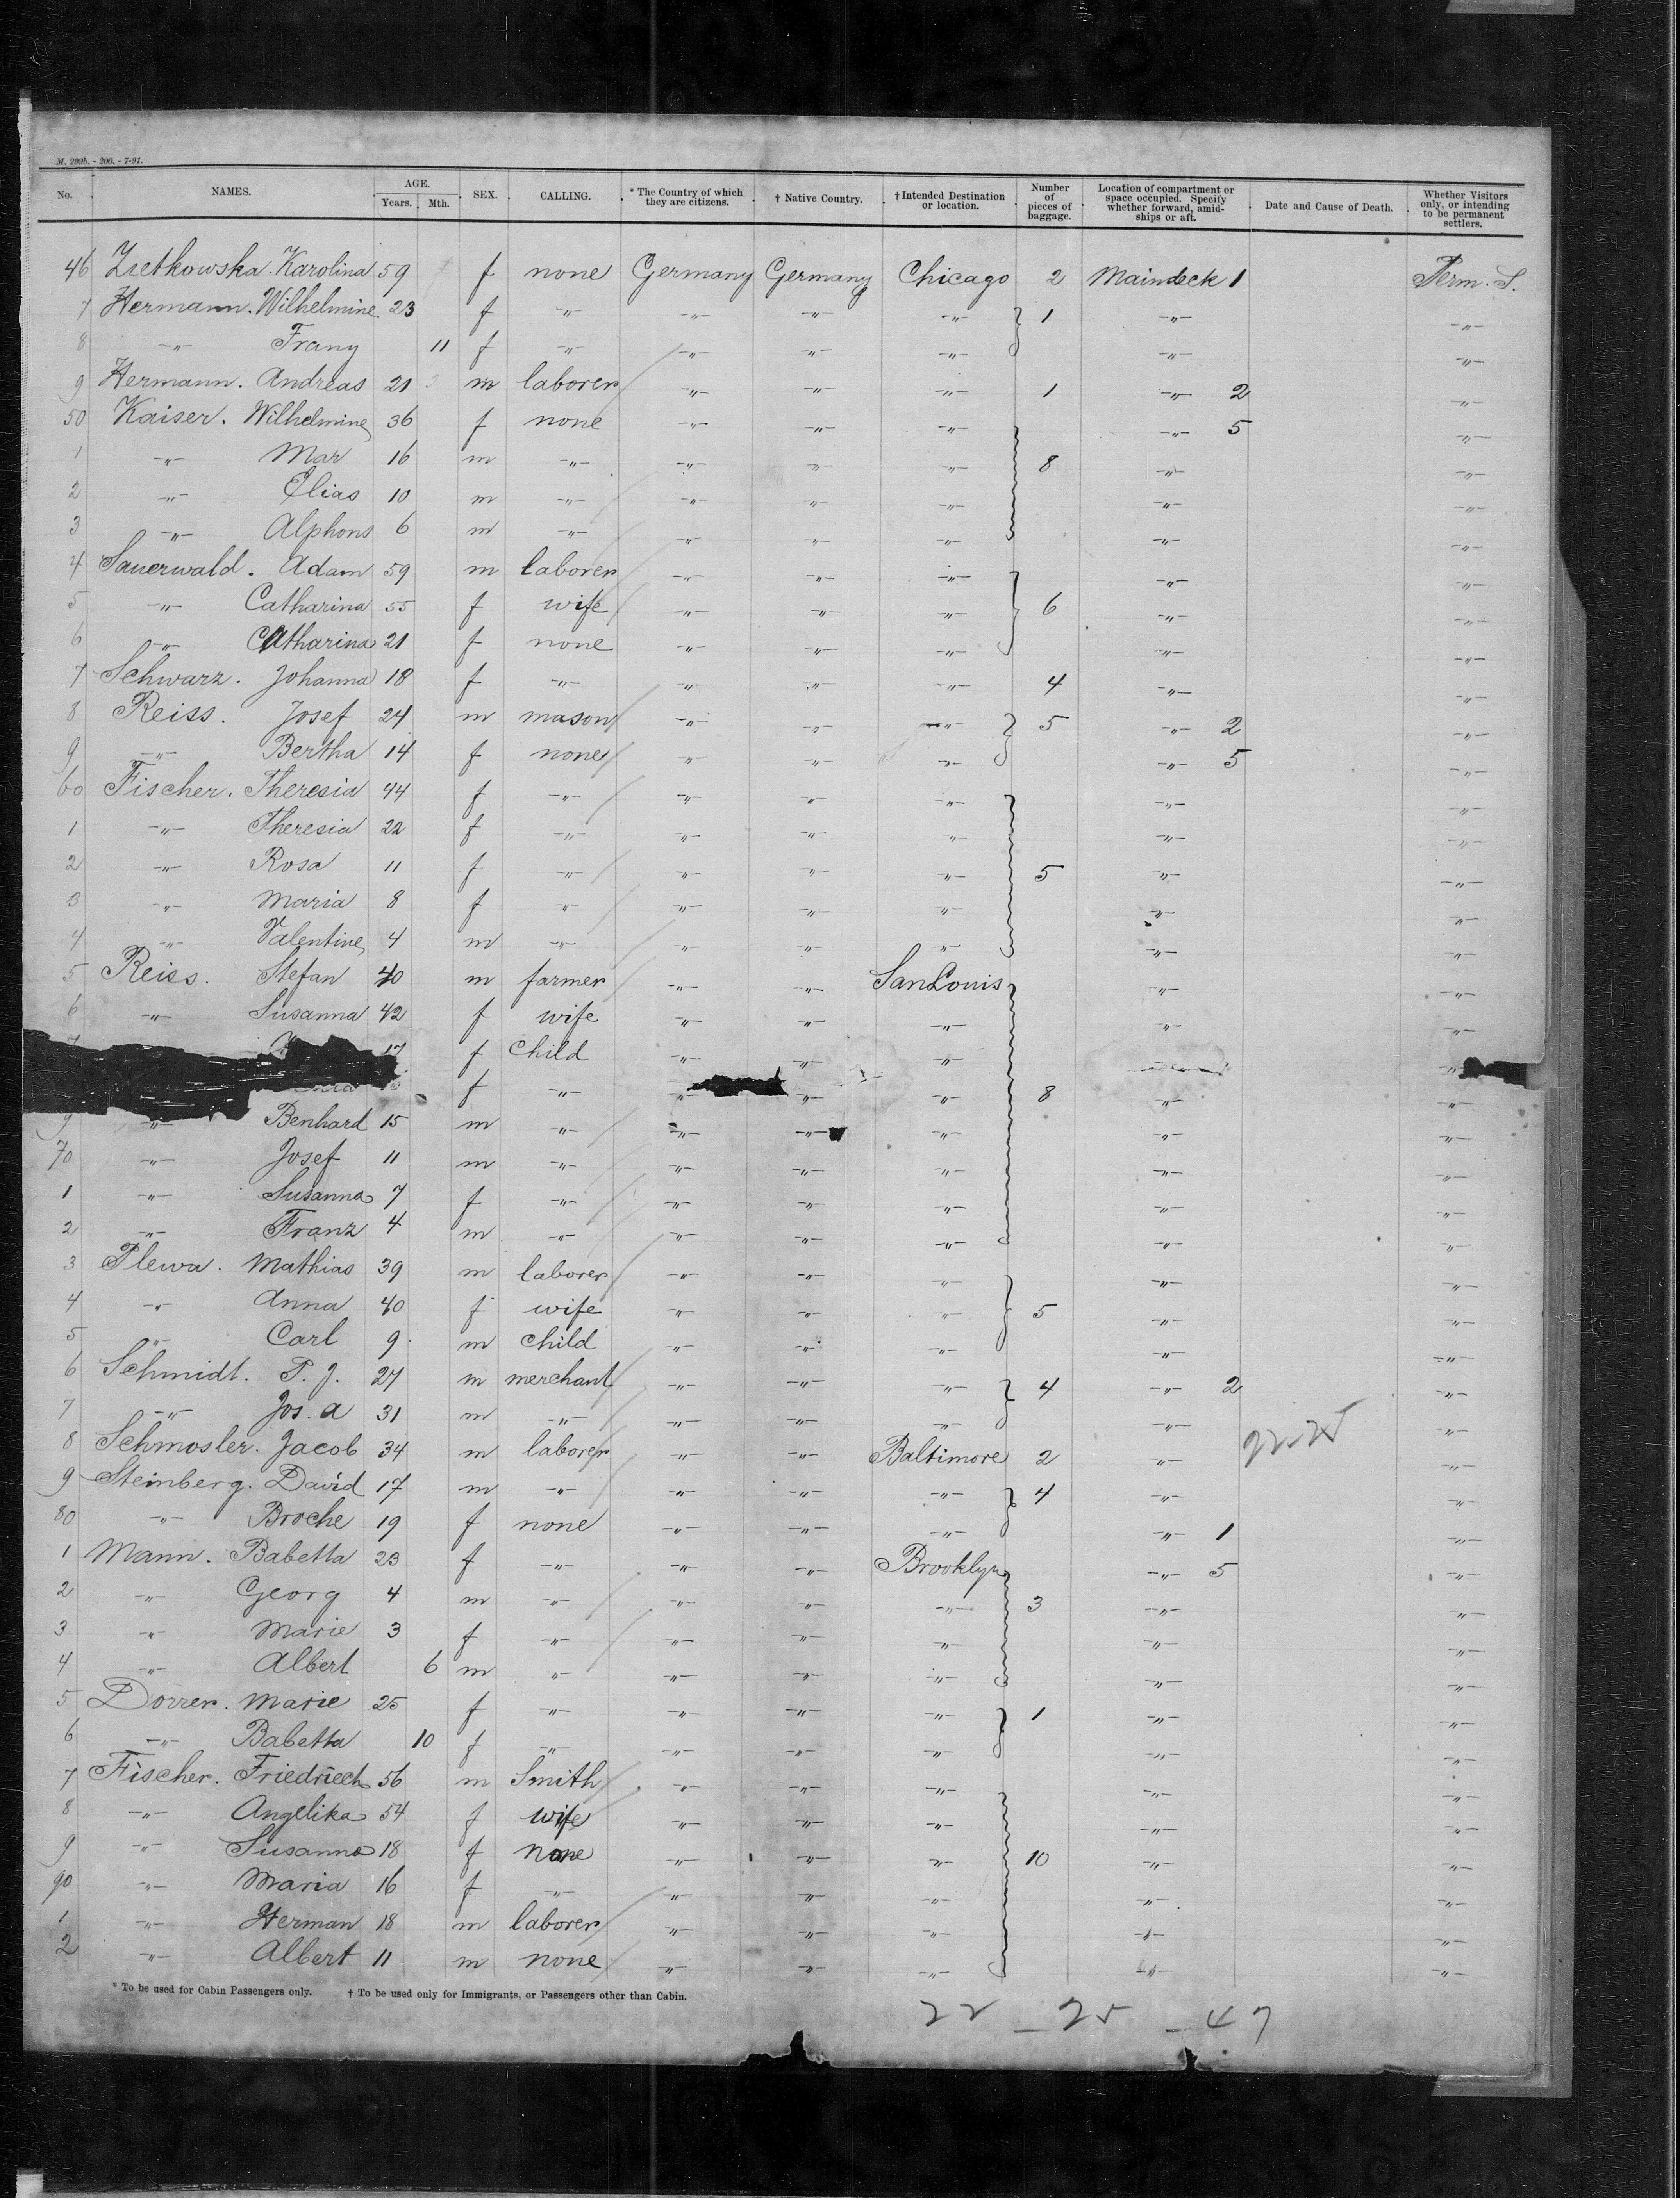 M. 299b. - 200. - 7-91.
No. NAMES. AGE. Years. Mth. SEX. CALLING. * The Country of which they are citizens. † Native Country. † Intended Destination or location. Number of pieces of baggage. Location of compartment or space occupied. Specify whether forward, amid-ships or aft. Date and Cause of Death. Whether Visitors only, or intending to be permanent settlers.
46 Zietkowska. Karolina 59 f none Germany Germany Chicago 2 Maindeck 1 Perm. S.
7 Hermann. Wilhelmine 23 f -"- -"- -"- -"- 1 -"- -"-
8 -"- Frany 11 f -"- -"- -"- -"- -"- -"-
9 Hermann. Andreas 21 m laborer -"- -"- -"- 1 -"- 2 -"-
50 Kaiser. Wilhelmine 36 f none -"- -"- -"- -"- 5 -"-
1 -"- Mar 16 m -"- -"- -"- -"- 8 -"- -"-
2 -"- Elias 10 m -"- -"- -"- -"- -"- -"-
3 -"- Alphons 6 m -"- -"- -"- -"- -"- -"-
4 Sauerwald. Adam 59 m laborer -"- -"- -"- -"- -"-
5 -"- Catharina 55 f wife -"- -"- -"- 6 -"- -"-
6 -"- Catharina 21 f none -"- -"- -"- -"- -"-
7 Schwarz. Johanna 18 f -"- -"- -"- -"- 4 -"- -"-
8 Reiss. Josef 24 m mason -"- -"- -"- 5 -"- 2 -"-
9 -"- Bertha 14 f none -"- -"- -"- -"- 5 -"-
60 Fischer. Theresia 44 f -"- -"- -"- -"- -"- -"-
1 -"- Theresia 22 f -"- -"- -"- -"- -"- -"-
2 -"- Rosa 11 f -"- -"- -"- -"- 5 -"- -"-
3 -"- Maria 8 f -"- -"- -"- -"- -"- -"-
4 -"- Valentine 4 m -"- -"- -"- -"- -"- -"-
5 Reiss. Stefan 40 m farmer -"- -"- San Louis -"- -"-
6 -"- Susanna 42 f wife -"- -"- -"- -"- -"-
17 f Child -"- -"- -"- -"- -"-
f -"- -"- -"- -"- 8 -"- -"-
9 -"- Benhard 15 m -"- -"- -"- -"- -"- -"-
70 -"- Josef 11 m -"- -"- -"- -"- -"- -"-
1 -"- Susanna 7 f -"- -"- -"- -"- -"- -"-
2 -"- Franz 4 m -"- -"- -"- -"- -"- -"-
3 Plewa. Mathias 39 m laborer -"- -"- -"- -"- -"-
4 -"- Anna 40 f wife -"- -"- -"- 5 -"- -"-
5 -"- Carl 9 m Child -"- -"- -"- -"- -"-
6 Schmidt. P. J. 27 m merchant -"- -"- -"- 4 -"- 2 -"-
7 -"- Jos. A 31 m -"- -"- -"- -"- -"- -"-
8 Schmosler. Jacob 34 m laborer -"- -"- Baltimore 2 -"- 22-25 -"-
9 Steinberg. David 17 m -"- -"- -"- -"- 4 -"- -"-
80 -"- Broche 19 f none -"- -"- -"- -"- 1 -"-
1 Mann. Babetta 23 f -"- -"- -"- Brooklyn -"- 5 -"-
2 -"- Georg 4 m -"- -"- -"- -"- 3 -"- -"-
3 -"- Marie 3 f -"- -"- -"- -"- -"- -"-
4 -"- Albert 6 m -"- -"- -"- -"- -"- -"-
5 Dorrer. Marie 25 f -"- -"- -"- -"- 1 -"- -"-
6 -"- Babetta 10 f -"- -"- -"- -"- -"- -"-
7 Fischer. Friedriech 56 m Smith -"- -"- -"- -"- -"-
8 -"- Angelika 54 f wife -"- -"- -"- -"- -"-
9 -"- Susanna 18 f none -"- -"- -"- 10 -"- -"-
90 -"- Maria 16 f -"- -"- -"- -"- -"- -"-
1 -"- Herman 18 m laborer -"- -"- -"- -"- -"-
2 -"- Albert 11 m none -"- -"- -"- -"- -"-
* To be used for Cabin Passengers only. † To be used only for Immigrants, or Passengers other than Cabin.
22 - 25 - 47